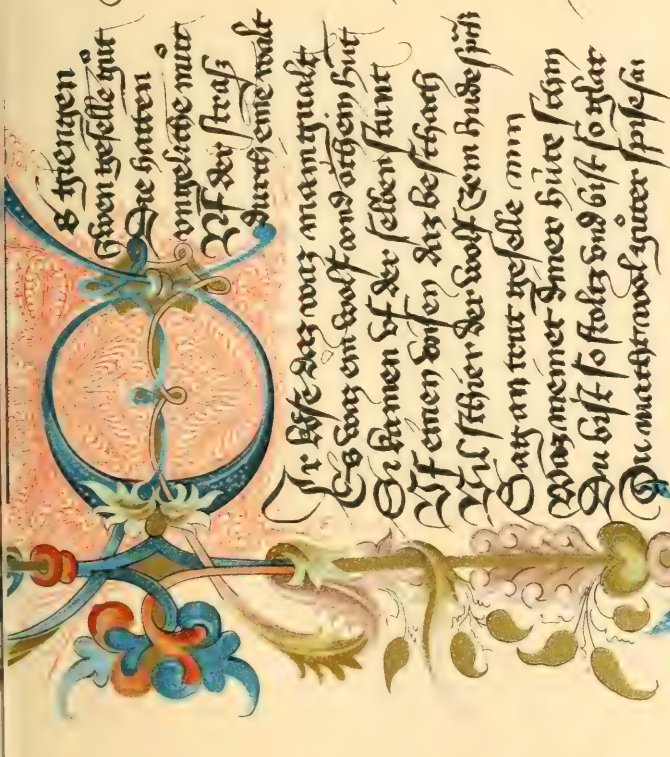 s giengen
zwen geselle gůt
Die hatten
vngeliche můt
Vf der straß
durch eine walt
Ir kose daz waz manigualt
Es waz ein wolf vnd ochein hūt
Si kamen vf der selben stunt
Vf einen wisen daz beschach
Vil schier der wolf zem hūde sp̄ch
Sag an trut geselle min
Waz meinet diner hute schin
Du bist so stoltz vnd bist so glar
Du macht wol gůter spise